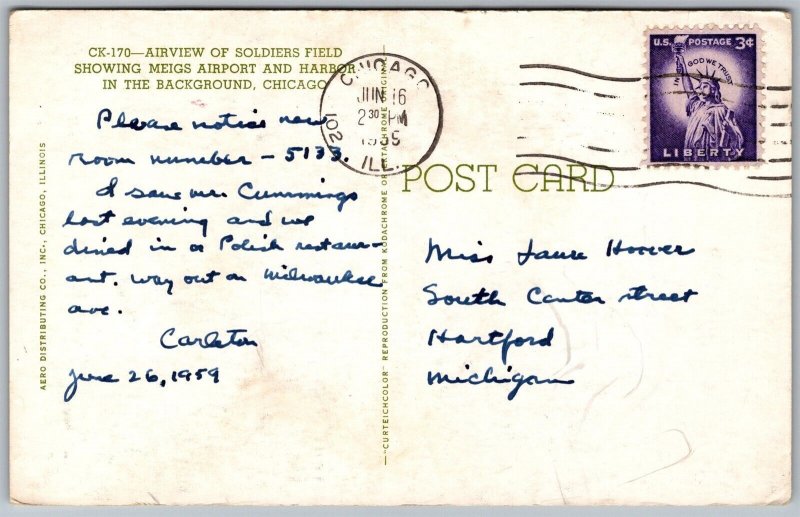 CK-170—AIRVIEW OF SOLDIERS FIELD
SHOWING MEIGS AIRPORT AND HARBOR
IN THE BACKGROUND, CHICAGO
Please notice new
room number – 5133.
I saw mr. Cummings
last evening and we
dined in a Polish restaur-
ant. way out on Milwaukee
ave.
Carleton
June 26, 1959
AERO DISTRIBUTING CO., INC., CHICAGO, ILLINOIS
"CURTEICHCOLOR" REPRODUCTION FROM KODACHROME OR EKTACHROME ORIGINAL
CHICAGO
JUN 16
2 30 PM
ILL.
U.S. POSTAGE 3¢
IN GOD WE TRUST
LIBERTY
POST CARD
Miss Laura Hoover
South Center street
Hartford
Michigan